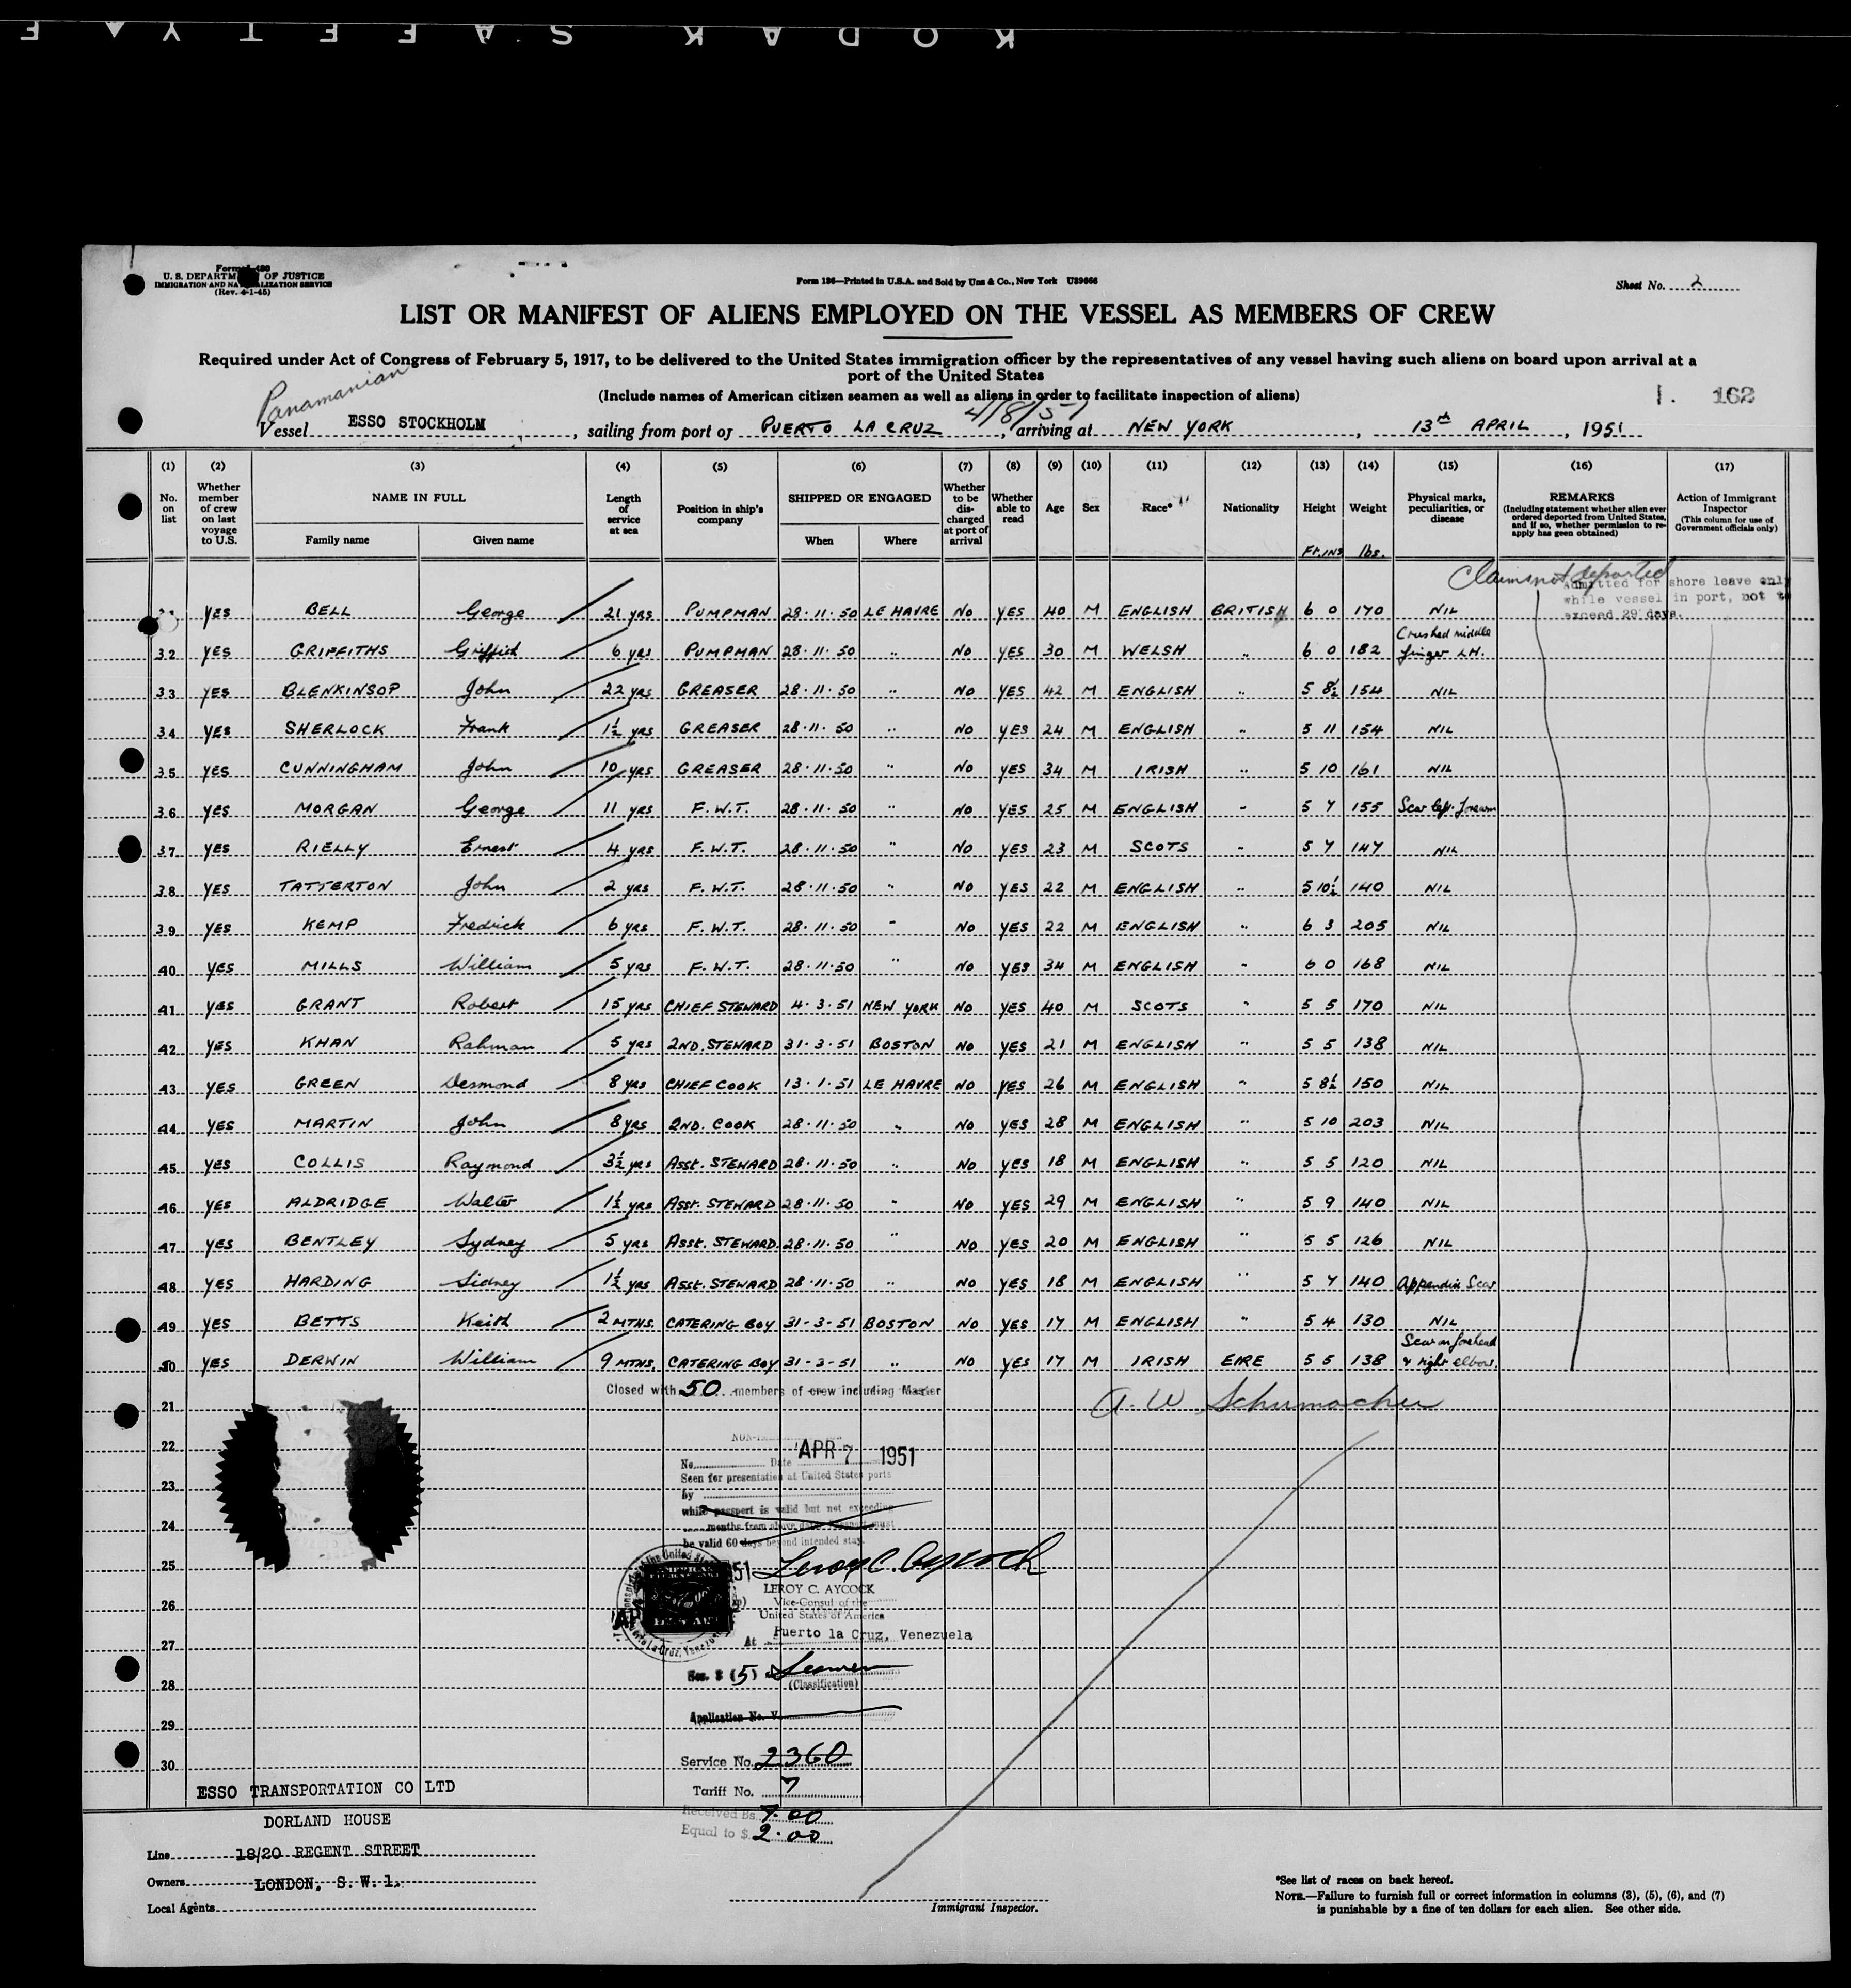 KODAK SAFETY
U. S. DEPARTM OF JUSTICE
IMMIGRATION AND NATURALIZATION SERVICE
(Rev. 4-1-45)
Form 136—Printed in U.S.A. and Sold by Unz & Co., New York U39666
Sheet No. 2
LIST OR MANIFEST OF ALIENS EMPLOYED ON THE VESSEL AS MEMBERS OF CREW
Required under Act of Congress of February 5, 1917, to be delivered to the United States immigration officer by the representatives of any vessel having such aliens on board upon arrival at a
port of the United States
(Include names of American citizen seamen as well as aliens in order to facilitate inspection of aliens)
162
Panamanian
4/8/51
Vessel ESSO STOCKHOLM, sailing from port of PUERTO LA CRUZ, arriving at NEW YORK, 13th APRIL, 1951
(1) (2) (3) (4) (5) (6) (7) (8) (9) (10) (11) (12) (13) (14) (15) (16) (17)
No. on list
Whether member of crew on last voyage to U.S.
NAME IN FULL
Family name
Given name
Length of service at sea
Position in ship's company
SHIPPED OR ENGAGED
When
Where
Whether to be discharged at port of arrival
Whether able to read
Age
Sex
Race*
Nationality
Height
Ft. INS
Weight
lbs.
Physical marks, peculiarities, or disease
REMARKS
(Including statement whether alien ever ordered deported from United States, and if so, whether permission to re-apply has been obtained)
Action of Immigrant Inspector
(This column for use of Government officials only)
Claims not deported
Admitted for shore leave only
while vessel in port, not to
exceed 29 days.
YES BELL George 21 yrs PUMPMAN 28.11.50 LE HAVRE NO YES 40 M ENGLISH BRITISH 6 0 170 NIL
32 YES GRIFFITHS Griffith 6 yrs PUMPMAN 28.11.50 " NO YES 30 M WELSH " 6 0 182 Crushed middle finger LH.
33 YES BLENKINSOP John 22 yrs GREASER 28.11.50 " NO YES 42 M ENGLISH " 5 8½ 154 NIL
34 YES SHERLOCK Frank 1½ yrs GREASER 28.11.50 " NO YES 24 M ENGLISH " 5 11 154 NIL
35 YES CUNNINGHAM John 10 yrs GREASER 28.11.50 " NO YES 34 M IRISH " 5 10 161 NIL
36 YES MORGAN George 11 yrs F.W.T. 28.11.50 " NO YES 25 M ENGLISH " 5 7 155 Scar left forearm
37 YES RIELLY Ernest 4 yrs F.W.T. 28.11.50 " NO YES 23 M SCOTS " 5 7 147 NIL
38 YES TATTERTON John 2 yrs F.W.T. 28.11.50 " NO YES 22 M ENGLISH " 5 10½ 140 NIL
39 YES KEMP Fredrick 6 yrs F.W.T. 28.11.50 " NO YES 22 M ENGLISH " 6 3 205 NIL
40 YES MILLS William 5 yrs F.W.T. 28.11.50 " NO YES 34 M ENGLISH " 6 0 168 NIL
41 YES GRANT Robert 15 yrs CHIEF STEWARD 4.3.51 NEW YORK NO YES 40 M SCOTS " 5 5 170 NIL
42 YES KHAN Rahman 5 yrs 2ND. STEWARD 31.3.51 BOSTON NO YES 21 M ENGLISH " 5 5 138 NIL
43 YES GREEN Desmond 8 yrs CHIEF COOK 13.1.51 LE HAVRE NO YES 26 M ENGLISH " 5 8½ 150 NIL
44 YES MARTIN John 8 yrs 2ND. COOK 28.11.50 " NO YES 28 M ENGLISH " 5 10 203 NIL
45 YES COLLIS Raymond 3½ yrs Asst. STEWARD 28.11.50 " NO YES 18 M ENGLISH " 5 5 120 NIL
46 YES ALDRIDGE Walter 1½ yrs Asst. STEWARD 28.11.50 " NO YES 29 M ENGLISH " 5 9 140 NIL
47 YES BENTLEY Sydney 5 yrs Asst. STEWARD 28.11.50 " NO YES 20 M ENGLISH " 5 5 126 NIL
48 YES HARDING Sidney 1½ yrs Asst. STEWARD 28.11.50 " NO YES 18 M ENGLISH " 5 7 140 Appendix Scar
49 YES BETTS Keith 2 MTHS. CATERING BOY 31-3-51 BOSTON NO YES 17 M ENGLISH " 5 4 130 NIL
50 YES DERWIN William 9 MTHS. CATERING BOY 31-3-51 " NO YES 17 M IRISH EIRE 5 5 138 Scar on forehead & right elbow.
Closed with 50 members of crew including Master
A. W Schumacher
21
22
23
24
25
26
27
28
29
30
No. Date APR 7 1951
Seen for presentation at United States ports
by
while passport is valid but not exceeding
months from above date. Passport must
be valid 60 days beyond intended stay.
Leroy C. Aycock
LEROY C. AYCOCK
Vice-Consul of the
United States of America
At Puerto la Cruz, Venezuela
Sec. 3 (5) Seamen
(Classification)
Application No. V
Service No. 2360
Tariff No. 7
Received Bs. 7.00
Equal to $ 2.00
ESSO TRANSPORTATION CO LTD
DORLAND HOUSE
Line 18/20 REGENT STREET
Owners LONDON, S. W. 1.
Local Agents
Immigrant Inspector.
*See list of races on back hereof.
NOTE.—Failure to furnish full or correct information in columns (3), (5), (6), and (7)
is punishable by a fine of ten dollars for each alien. See other side.